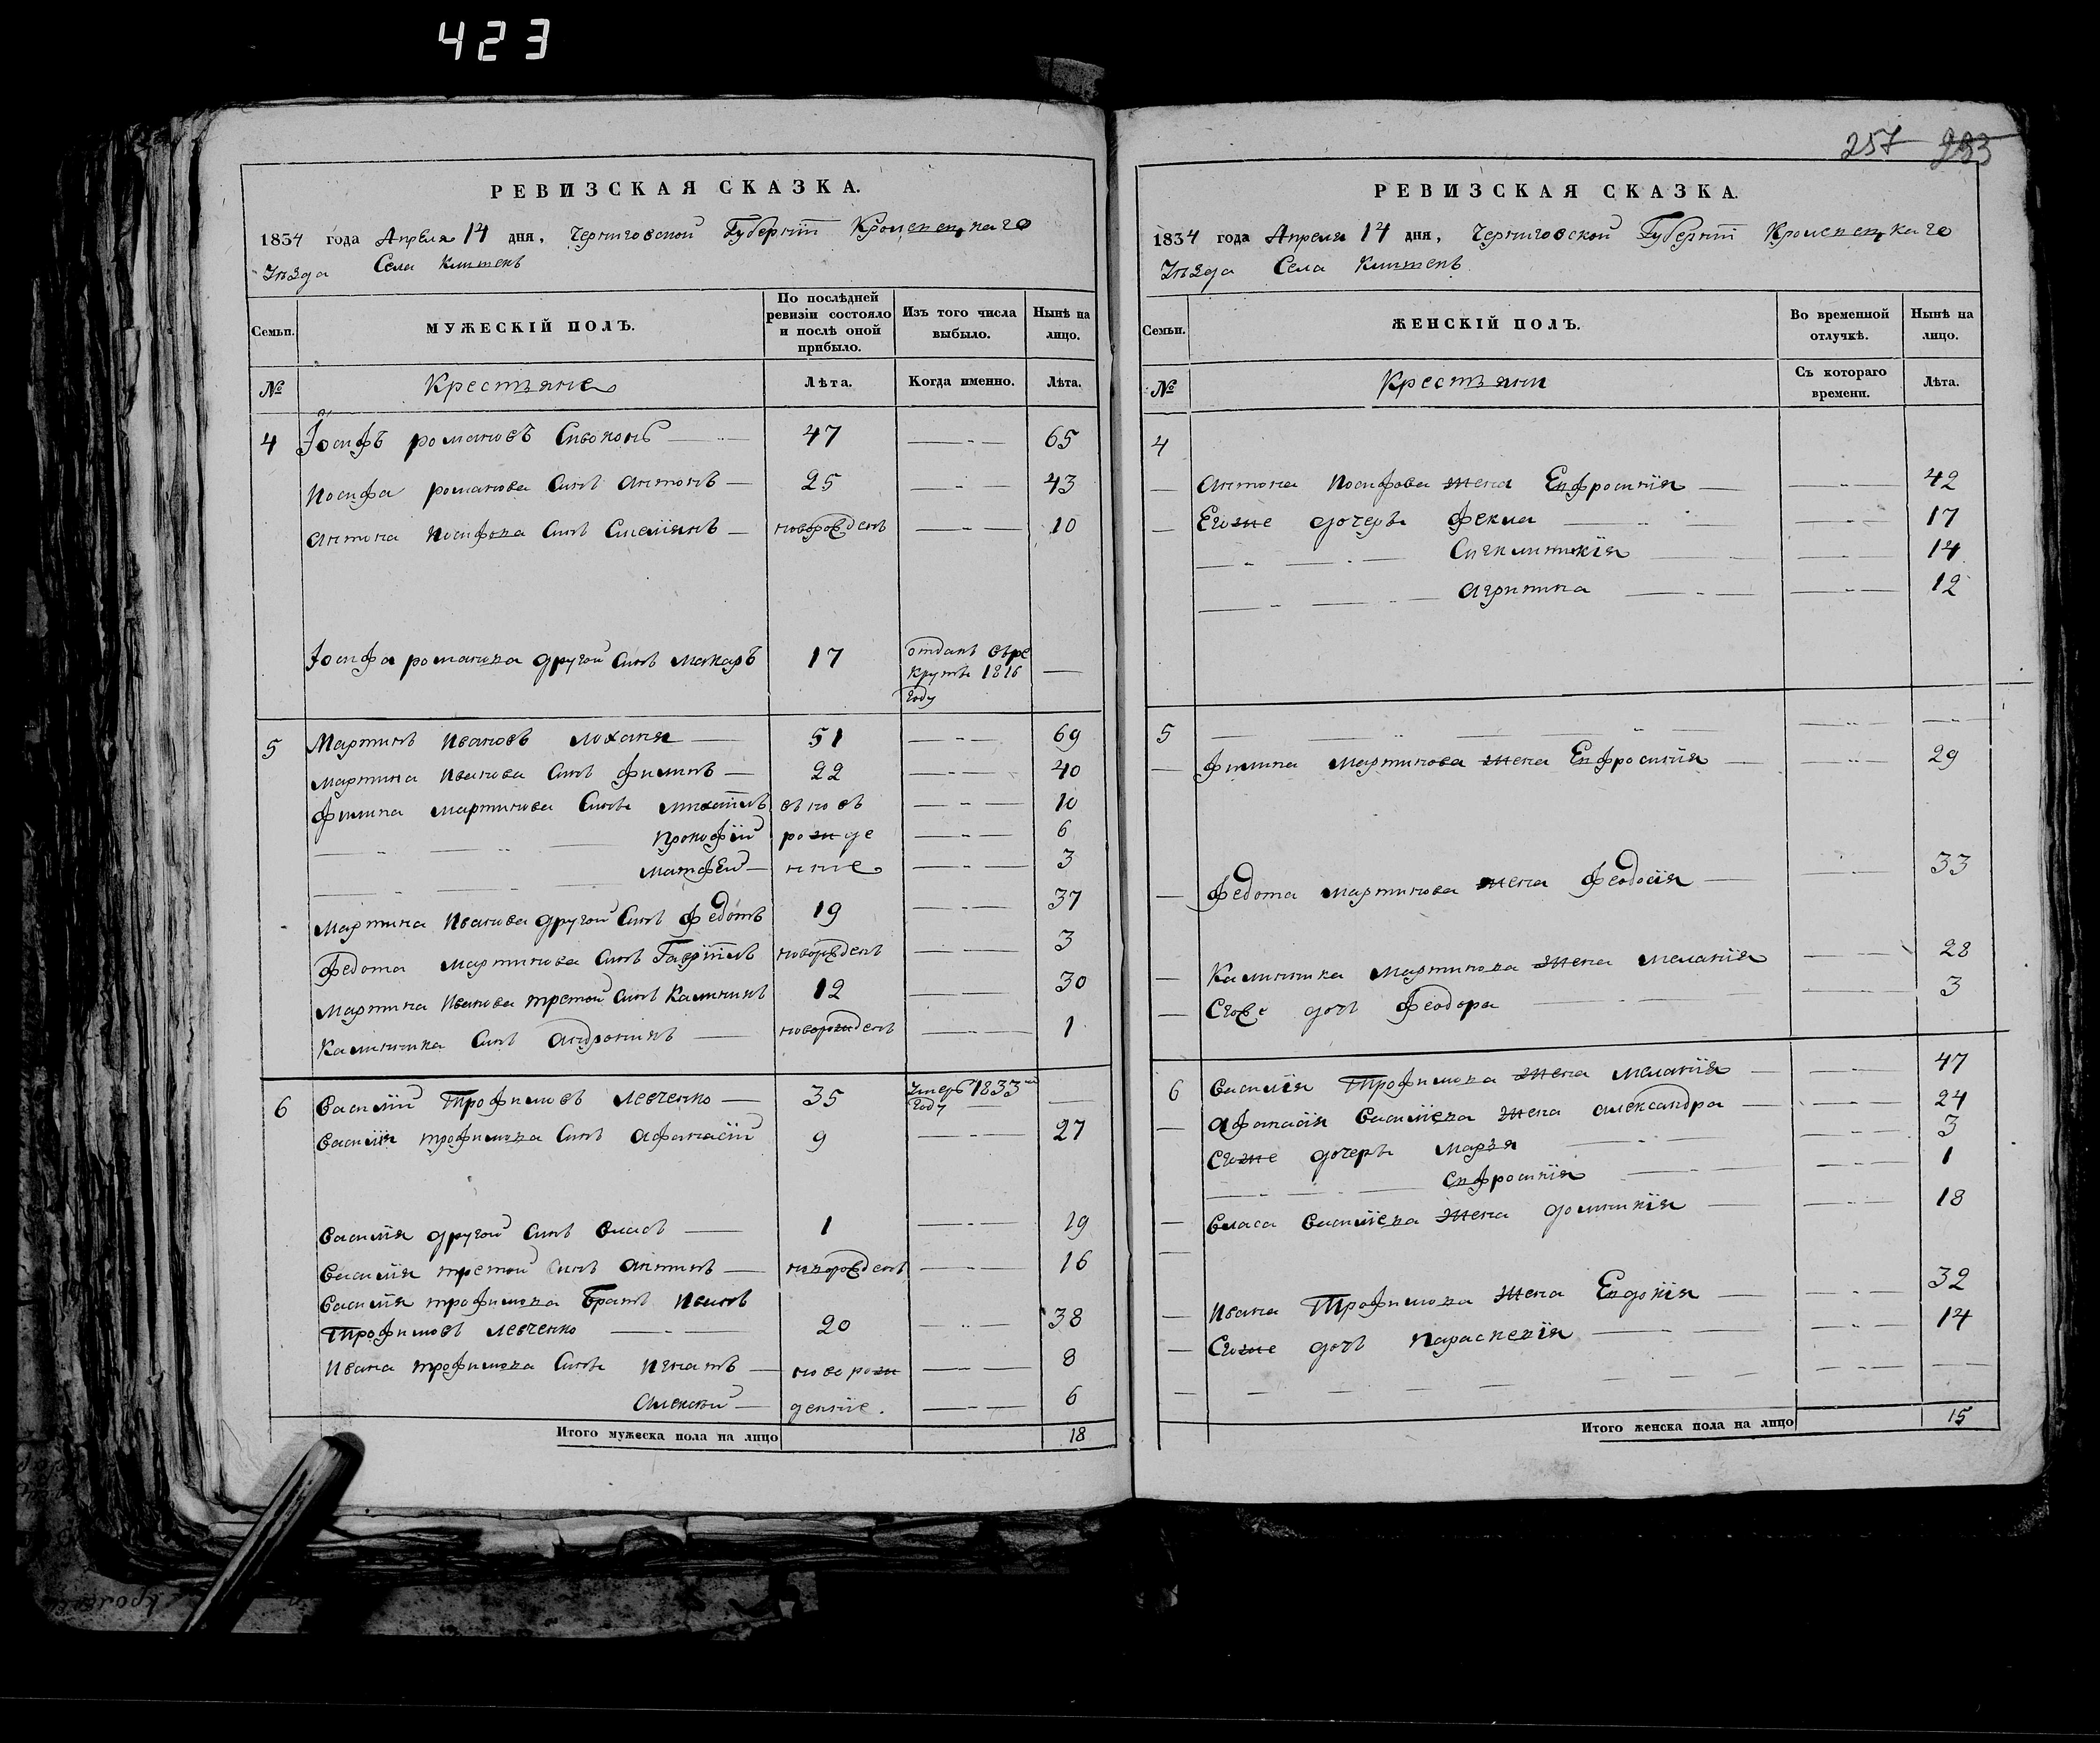 423
РЕВИЗСКАЯ СКАЗКА.
1834 года Апреля 14 дня, Черниговской Губернїи Кролевецкаго
Уѣзда Села
Семьи. МУЖЕСКІЙ ПОЛЪ. По послѣдней ревизіи состояло и послѣ оной прибыло. Изъ того числа выбыло. Нынѣ на лицо.
№ Крестьяне Лѣта. Когда именно. Лѣта.
4 Іосифъ романовъ Сивоконь 47 65
Иосифа романова Синъ Антонъ 25 43
Антона Иосифова Синъ Емелїянъ новорожденъ 10
Іосифа романова другой Синъ макаръ 17 отданъ въре
крути 1816
году
5 Мартинъ Ивановъ лоханя 51 69
мартина Иванова Синъ филипъ 22 40
филипа мартинова Сини михаїлъ въ но въ 10
прокофїй рожде 6
матфей ннне 3
мартина Иванова другой Синъ федотъ 19 37
федота мартинова Синъ Гаврїилъ новорожденъ 3
мартина Иванова третой Синъ Калиникъ 12 30
Калиника Синъ Андроникъ новорожденъ 1
6 Василїй Трофимовъ левченко 35 Умеръ 1833го
году
Василїя трофимова Синъ Афанасїй 9 27
Василїя другой Синъ власъ 1 19
Василїя третой Синъ Антипъ новорожденъ 16
Василїя трофимова Братъ Иванъ
Трофимовъ левченко 20 38
Ивана трофимова Сини Игнатъ ново рож 8
Алексѣй денние. 6
Итого мужеска пола на лицо 18
257 283
РЕВИЗСКАЯ СКАЗКА.
1834 года Апреля 14 дня, Черниговской Губернїи Кролевецкаго
Уѣзда Села
Семьи. ЖЕНСКІЙ ПОЛЪ. Во временной отлучкѣ. Нынѣ на лицо.
№ Крестьяни Съ котораго времени. Лѣта.
4
Антона Иосифова жена Ефросинїя 42
Егоже дочери фекла 17
Синклитикїя 14
Агрипина 12
5
филипа мартинова жена Ефросинїя 29
федота мартинова жена феодосїя 33
Калиника мартинова жена меланїя 28
Егоже дочь феодора 3
6 Василїя Трофимова жена меланїя 47
Афанасїя Василїева жена Александра 24
Егоже дочери марья 3
Ефросинїя 1
власа Василїева жена домникїя 18
Ивана Трофимова жена Евдокїя 32
Егоже дочь параскевїя 14
Итого женска пола на лицо 15